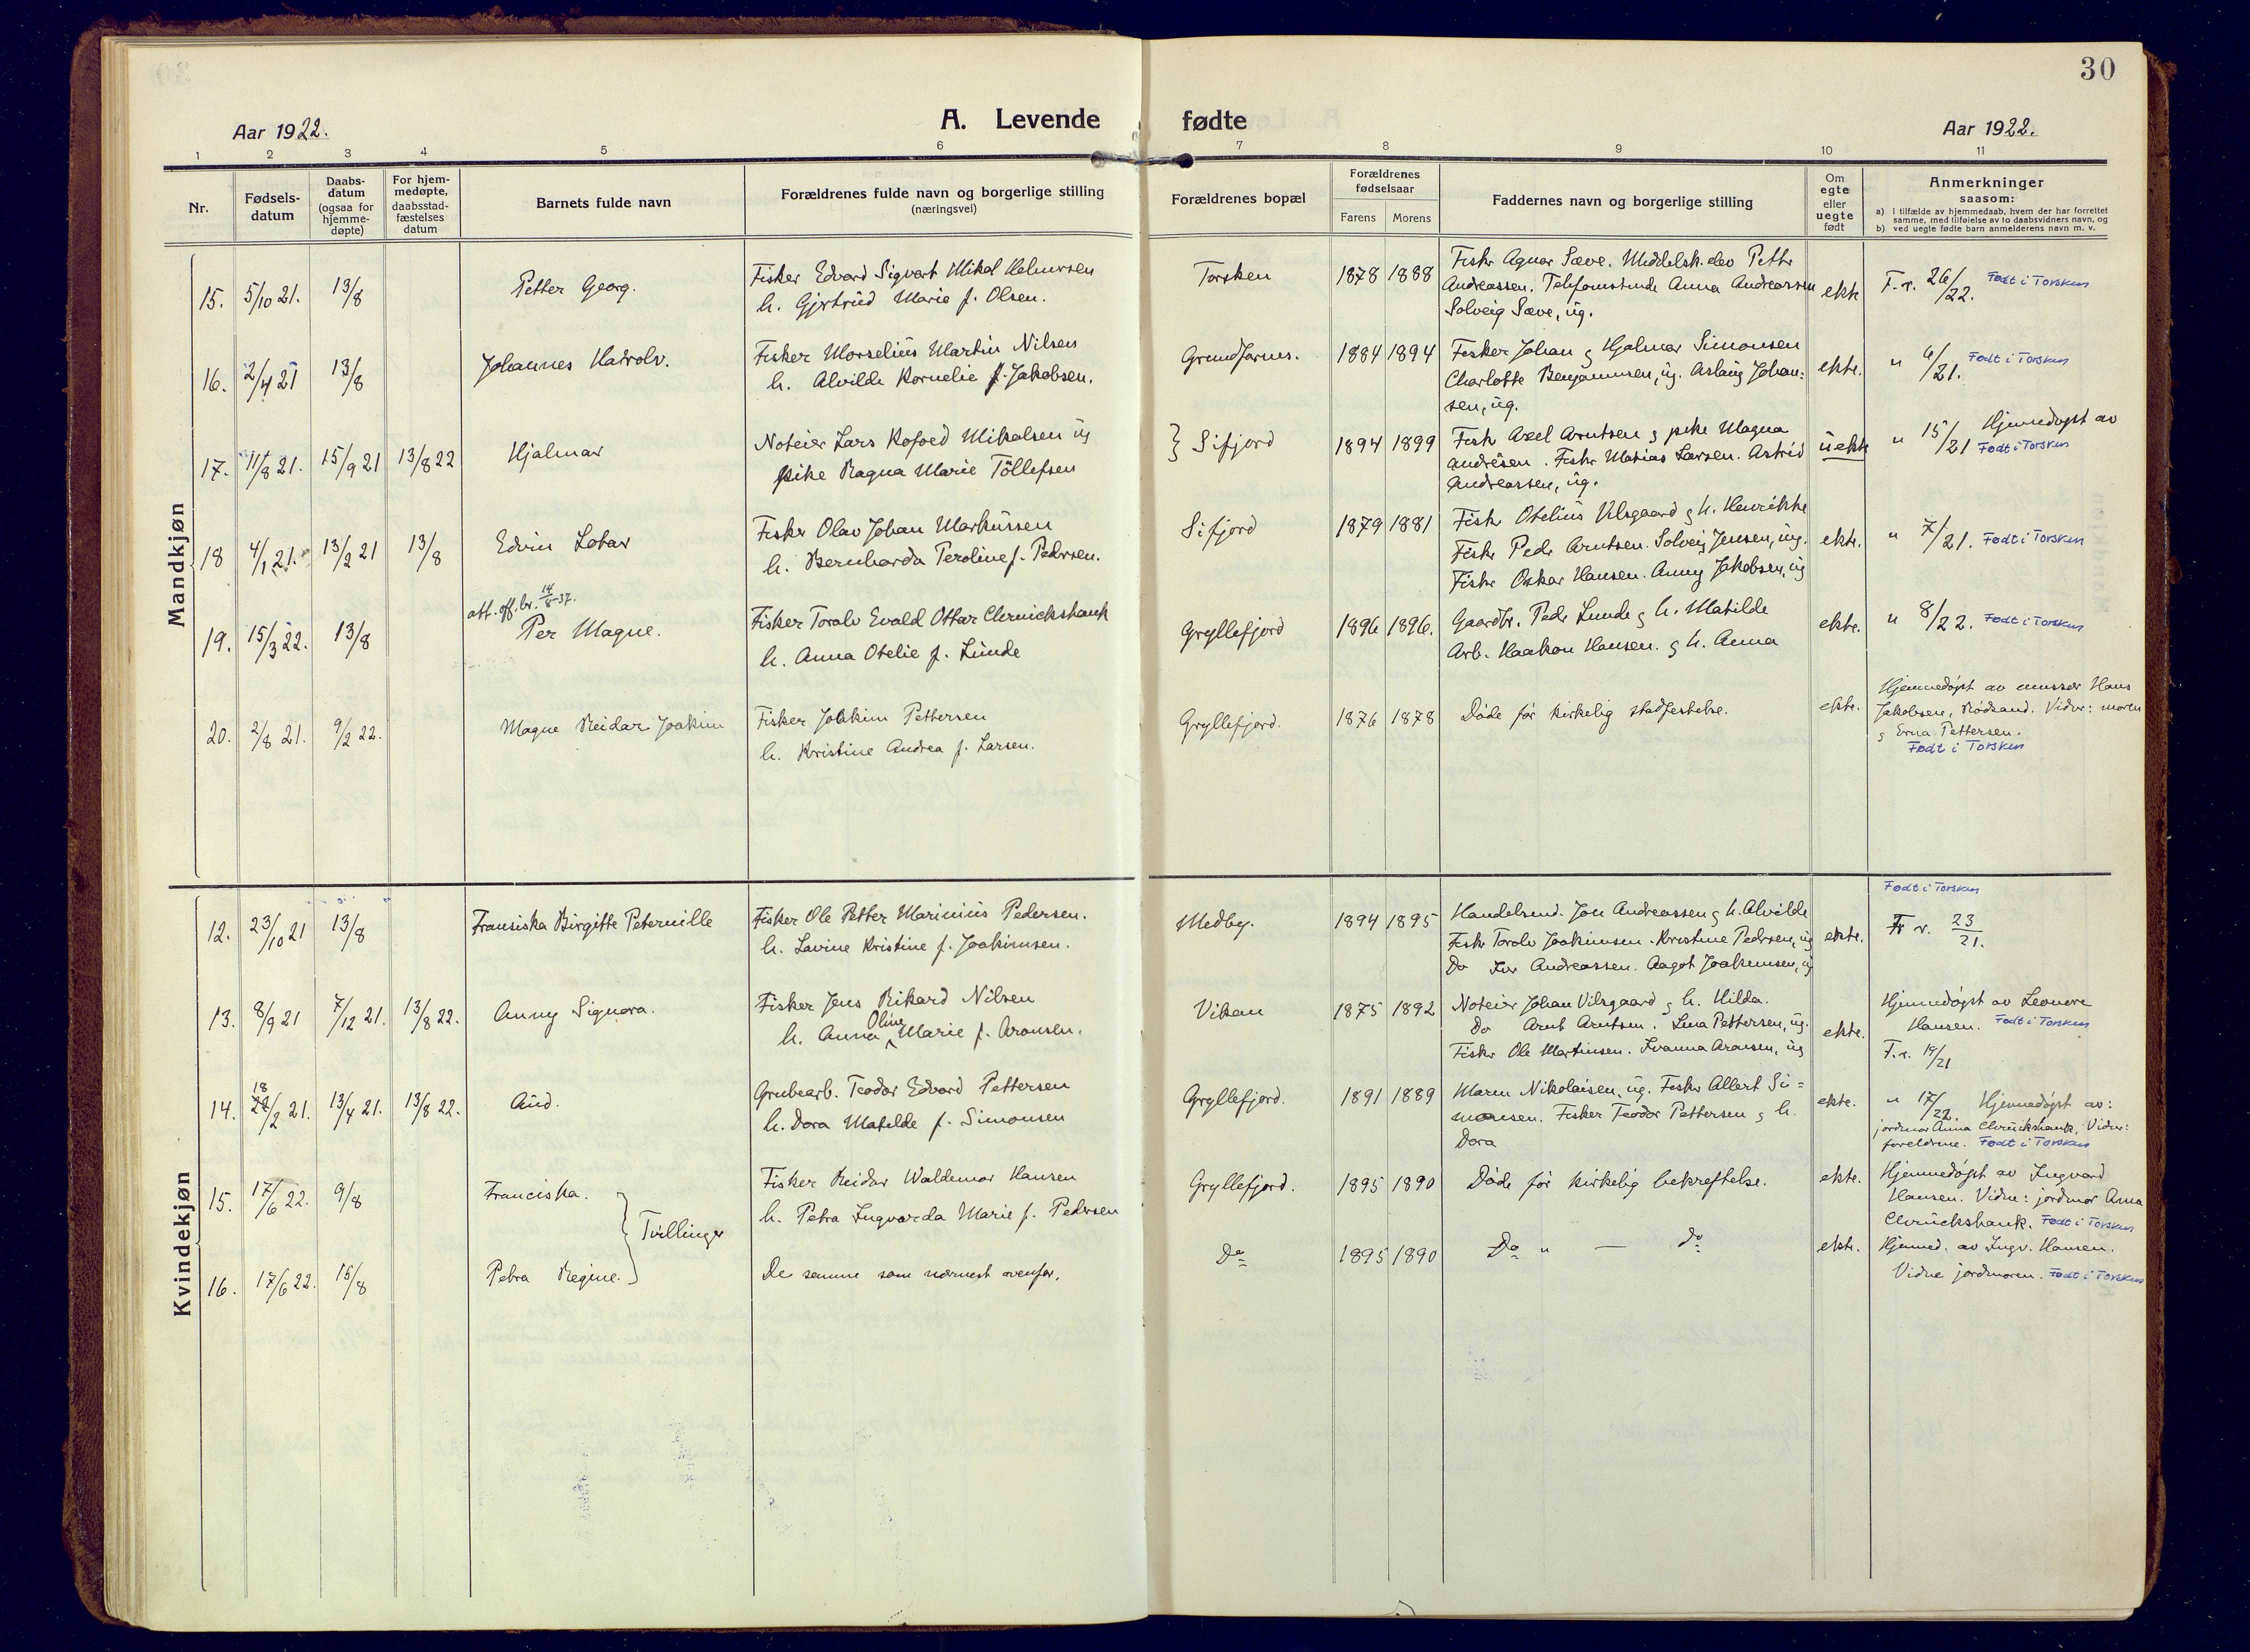 30
Aar 1922.
A. Levende fødte
Aar 1922.
1 2 3 4 5 6 7 8 9 10 11
Nr.
Fødsels-
datum
Daabs-
datum
(ogsaa for
hjemme-
døpte)
For hjem-
medøpte,
daabsstad-
fæstelses
datum
Barnets fulde navn
Forældrenes fulde navn og borgerlige stilling
(næringsvei)
Forældrenes bopæl
Forældrenes
fødselsaar
Farens Morens
Faddernes navn og borgerlige stilling
Om
egte
eller
uegte
født
Anmerkninger
saasom:
a) i tilfælde av hjemmedaab, hvem der har forrettet
samme, med tilføielse av to daabsvidners navn, og
b) ved uegte fødte barn anmelderens navn m. v.
Mandkjøn
15. 5/10 21. 13/8
Petter Georg.
Fisker Edvard Sigvart Mikal
h. Gjertrud Marie f. Olsen.
Torsken
1878 1888
Fisker Agnar Sæve. Middelsk.elev Petter
Andreassen. Anna Andreassen
Solveig Sæve, ug.
ekte
F. r. 26/22. Født i Torsken
16. 2/4 21 13/8
Johannes Hadrolv.
Fisker Morselius Martin Nilsen
h. Alvilde Kornelie f. Jakobsen.
Grundfarnes.
1884 1894
Fisker Johan g Hjalmar Simonsen
Charlotte Benjaminsen, ug. Aslaug Johan:
sen, ug.
ekte.
" 6/21. Født i Torsken
17. 11/8 21. 15/9 21 13/8 22
Hjalmar
Noteier Lars Kofoed Mikalsen ug
pike Ragna Marie Tollefsen
} Sifjord
1894 1899
Fisk Axel Arntsen g pike Magna
Andresen. Fisker Matias Larsen. Astrid
Andreassen, ug.
uekte
" 15/21 Hjemmedøpt av
Født i Torsken
18 4/1 21. 13/2 21 13/8
Edvin Lotar
Fisker Olav Johan Markussen
h. Bernharda Peroline f. Pedersen.
Sifjord
1879 1881
Fisker Otelius Vilsgaard g h. Henrikke
Fisker Peder Arntsen. Solveig Jensen, ug.
Fisker Oskar Hansen. Anny Jakobsen, ug
ekte.
" 7/21. Født i Torsken
att. off. br. 14/8-37.
19. 15/3 22. 13/8
Per Magne.
Fisker Toralv Evald Ottar Chruickshank
h. Anna Otelie f. Lunde
Gryllefjord
1896 1896.
Gaardbr. Peder Lunde g h. Matilde
Arb. Haakon Hansen. g h. Anna
ekte.
" 8/22. Født i Torsken
20. 2/8 21. 9/2 22.
Magne Reidar Joakim
Fisker Joakim Pettersen
h. Kristine Andrea f. Larsen.
Gryllefjord.
1876 1878
Døde før kirkelig stadfestelse.
ekte.
Hjemmedøpt av Hans
Jakobsen, Rødsand. Vidner: moren
g Erna Pettersen.
Født i Torsken
Kvindekjøn
12. 23/10 21 13/8
Fransiska Birgitte Peternille
Fisker Ole Petter Marinius Pedersen.
h. Lavine Kristine f. Joakimsen.
Medby.
1894 1895
Handelsmd. Jon Andreassen g h. Alvilde
Fisker Toralv Joakimsen. Kristine Pedersen, ug
Do Andreassen. Aagot Joakimsen, ug
ekte.
Født i Torsken
F. r. 23/21.
13. 8/9 21 7/12 21. 13/8 22.
Anny Signora.
Fisker Jens Rikard Nilsen
h. Anna Oline Marie f. Aronsen.
Vikan
1875 1892
Noteier Johan Vilsgaard g h. Hilda.
Do Arnt Arntsen. Lina Pettersen, ug.
Fisker Ole Martinsen. Ivanna Aronsen, ug
ekte.
Hjemmedøpt av Leonore
Hansen. Født i Torsken
F. r. 19/21
14. 18/2 21. 13/4 21. 13/8 22.
Aud.
Grubearb. Teodor Edvard Pettersen
h. Dora Matilde f. Simonsen
Gryllefjord.
1891 1889
Maren Nikolaisen, ug. Fisker Allert Si=
monsen. Fisker Teodor Pettersen g h.
Dora
ekte.
" 17/22. Hjemmedøpt av:
jordmor Anna Chruickshank, Vidner:
foreldrene. Født i Torsken
15. 17/6 22. 9/8
Franciska.
} Tvillinger
Fisker Reidar Waldemar Hansen
h. Petra Ingvarda Marie f. Pedersen
Gryllefjord.
1895 1890
Døde før kirkelig bekreftelse.
ekte.
Hjemmedøpt av Ingvard
Hansen. Vidne: jordmor Anna
Chruickshank. Født i Torsken
16. 17/6 22. 15/8
Petra Regine.
De samme som nærmest ovenfor.
Do
1895 1890
Do " — do
ekte.
Hjemmed. av Ingv. Hansen.
Vidne jordmoren. Født i Torsken